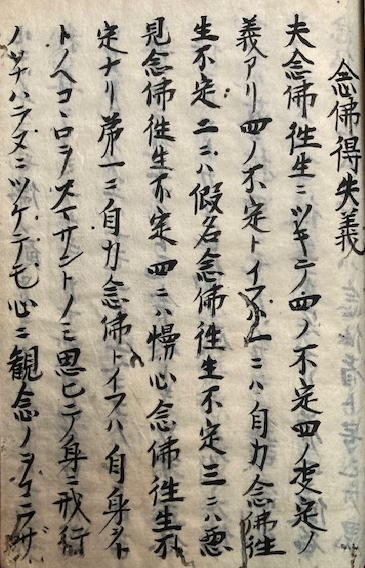 念佛得失義
夫念佛徃生ニツキテ四ノ不定四ノ変定ノ
義アリ四ノ不定トイフハ一ニハ自力念佛徃
生不定二ニハ假名念佛徃生不定三ニハ悪
見念佛徃生不定四ニハ慢心念佛徃生不
定ナリ第一ニ自力念佛トイフハ自身ヲト
トノヘコヽロヲスマサントノミ思ヒテノ身ニ戒行
ノソナハラヌニツケテモ心ニ観念ノヲコラザ